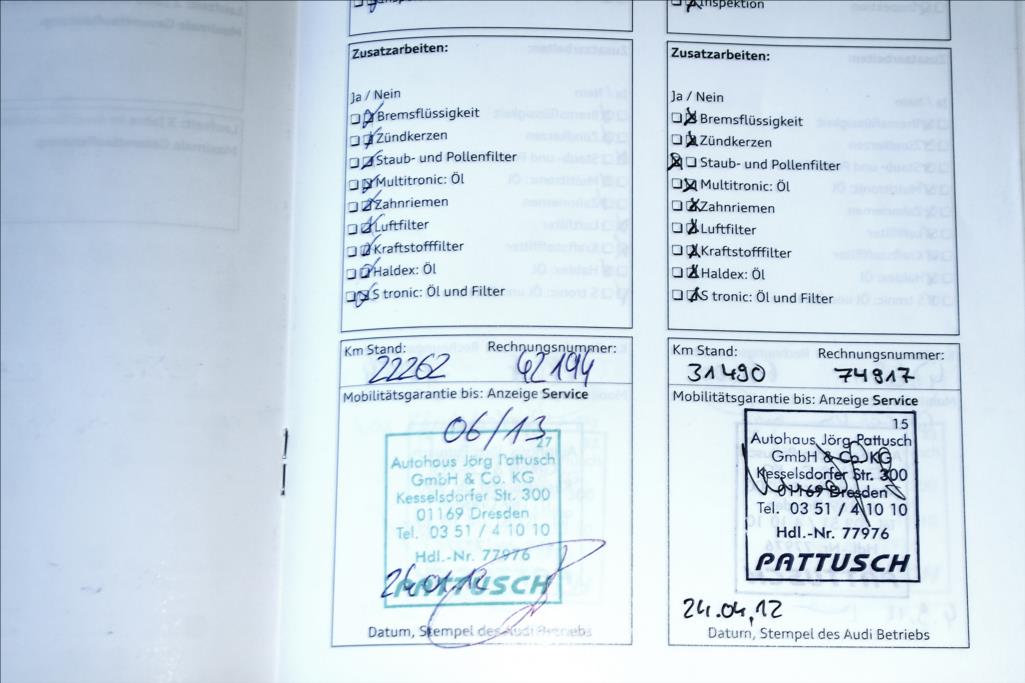 Inspektion
Zusatzarbeiten:
Ja / Nein
Bremsflüssigkeit
Zündkerzen
Staub- und Pollenfilter
Multitronic: Öl
Zahnriemen
Luftfilter
Kraftstofffilter
Haldex: Öl
S tronic: Öl und Filter
Km Stand: Rechnungsnummer:
22262 62194
Mobilitätsgarantie bis: Anzeige Service
06/13
27
Autohaus Jörg Pattusch
GmbH & Co. KG
Kesselsdorfer Str. 300
01169 Dresden
Tel. 03 51 / 4 10 10
Hdl.-Nr. 77976
PATTUSCH
24.01.12
Datum, Stempel des Audi Betriebs
Inspektion
Zusatzarbeiten:
Ja / Nein
Bremsflüssigkeit
Zündkerzen
Staub- und Pollenfilter
Multitronic: Öl
Zahnriemen
Luftfilter
Kraftstofffilter
Haldex: Öl
S tronic: Öl und Filter
Km Stand: Rechnungsnummer:
31490 74917
Mobilitätsgarantie bis: Anzeige Service
15
Autohaus Jörg Pattusch
GmbH & Co. KG
Kesselsdorfer Str. 300
01169 Dresden
Tel. 03 51 / 4 10 10
Hdl.-Nr. 77976
PATTUSCH
24.04.12
Datum, Stempel des Audi Betriebs